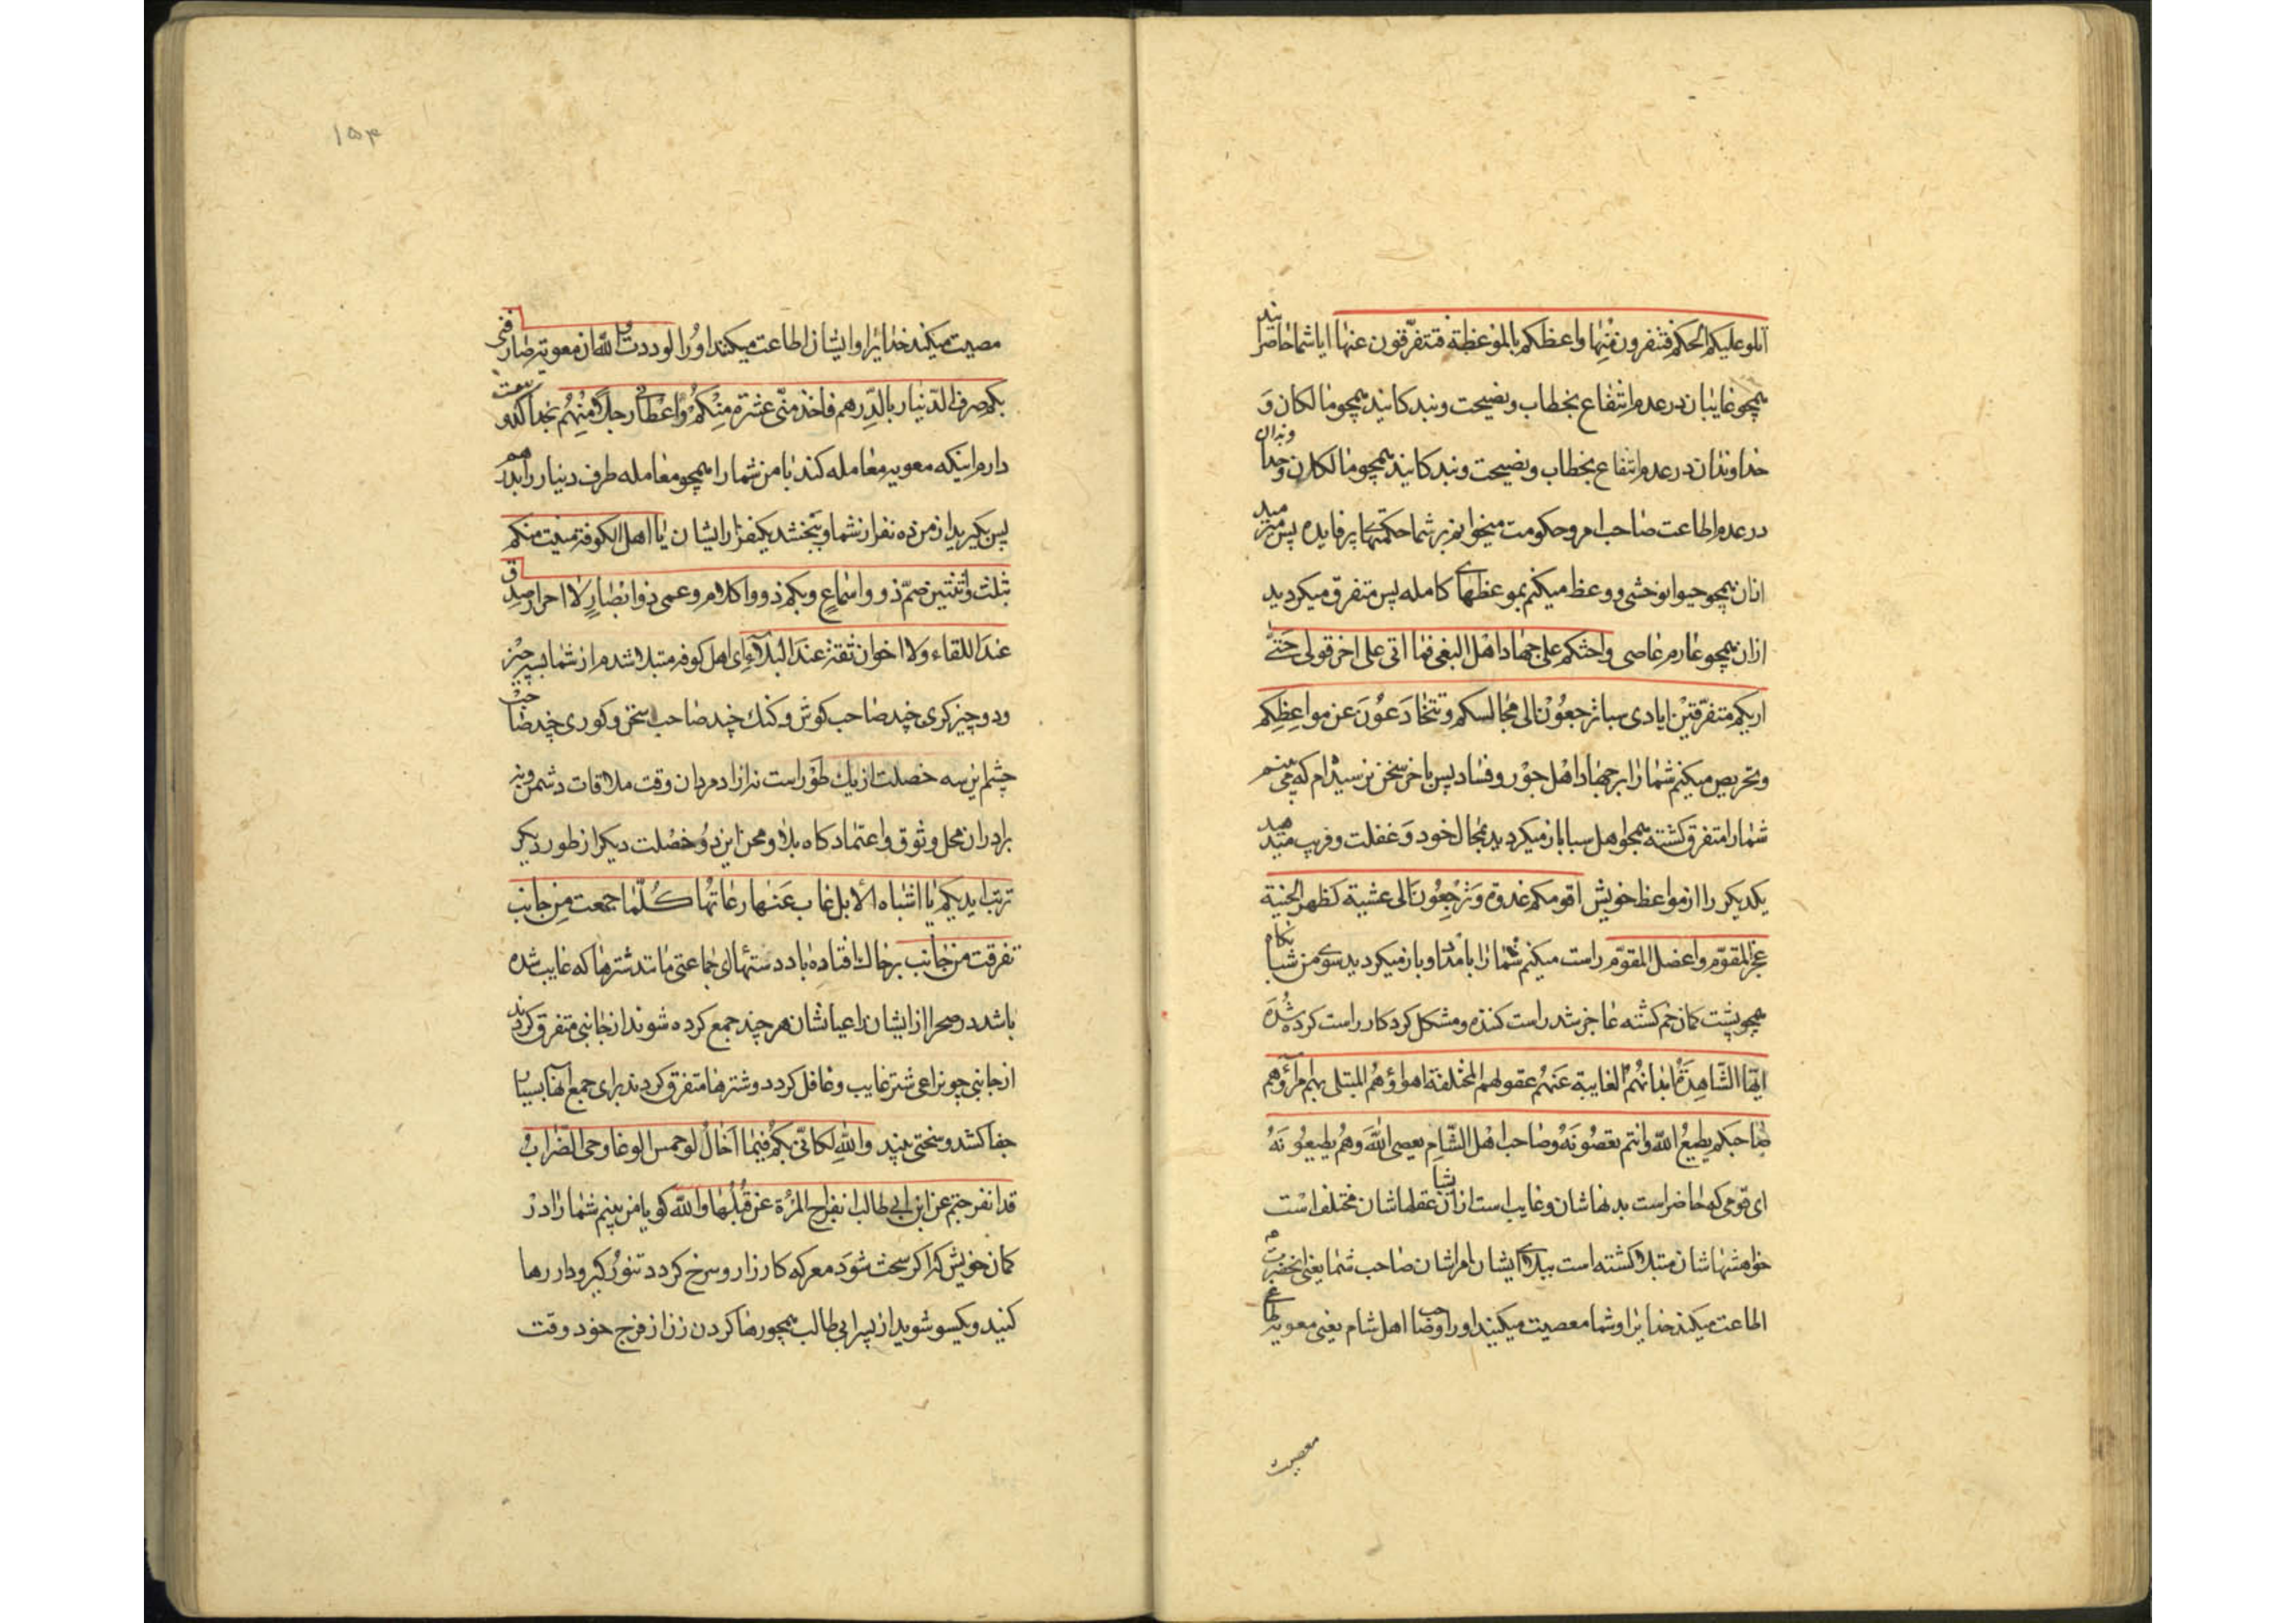 اتلو علیکم الحکم فتنفرون منها و اعظکم بالموعظة فتتفرّقون عنها ایا شما حاضرانید
همچو غایبان در عدم انتفاع بخطاب و نصیحت و بندکانید همچو مالکان وَ
خداوندان در عدم انتفاع بخطاب و نصیحت و بندکانید همچو مالکان و خداوندان
در عدم اطاعت صاحب امر و حکومت میخوانم بر شما حکمتهای پرفایده پس میرمید
ازان همچو حیوان وحشی و وعظ میکنم بموعظهای کامله پس متفرق میکردید
ازان همچو عارم عاصی و احثکم علی جهاد اهل البغی فما اتی علی اخر قولی حَتّی
اریکم متفرّقین ایادی سبا ترجعُوْن الی مجالسکم و تتخادَعُوْنَ عن مواعِظِکم
و تحریص میکنم شما را بر جهاد اهل جوْر و فساد پس باخر سخن نرسیدام که می بینم
شما را متفرق کشته همچو اهل سبا باز میکردید بمجالس خود وَ غفلت و فریب میدهید
یکدیکر را از مواعظ خویش اقومکم غدوة وَ ترْجِعُوْنَ الی عشیة کظهر الحنیة
عجز المقوّم و اعضل المقوّم راست میکنم شما را بامداد و باز میکردید بسوی من شبانکاه
همچو پشت کمان خم کشته عاجز شد راست کننده و مشکل کرد کار راست کرده شُدَه
ایّها الشّاهِدَةُ ابدانُهُم الغایبة عَنهُم عقولهم المختلفة اهواؤهُم المبتلی بهم امرآؤهم
صاحبکم یطیعُ اللّه و انتم تعصُوْنَهُ و صاحب اهْل الشّام یعصی اللّهَ وَ هُم یطیعُوْنَهُ
ای قومی که حاضر است بدنهاشان و غایب است ازیشان عقلهاشان مختلف است
خواهشهاشان مبتلا کشته است ببلای ایشان امراشان صاحب شما یعنی انحضرت
اطاعت میکند خدایرا و شما معصیت میکنید او را و صاحب اهل شام یعنی معویه
معصیت
۱۵۴
معصیت میکند خدایرا و ایشان اطاعت میکنند او را لوددت و اللّه ان معویة صارفنی
بکم صرف الدّینار بالدِّرهم فاخذ منّی عشرة مِنْکم وَ اعْطانی رجلا مِنْهُم بخدا
دارم اینکه معویه معامله کند با من شما را همچو معامله صرف دینار را بدرهم
پس بکیرید از من ده نفر از شما و ببخشد یکنفر از ایشان یا اهل الکوفة منیت منکم
بثلث و اثنتین صمّ ذوو اسماعٍ و بکم ذوو اکلام و عمی ذو ابْصارٍ لا احرار صدق
عندَ اللقاء و لا اخوان ثقة عندَ البلآءِ ای اهل کوفه مبتلا شدم از شما بسه چیز
و دو چیز کری چند صاحب کوش و کنک چند صاحب سخن و کوری چند صاحب
چشم این سه خصلت از یک طوْر است نه از ازاد مردان وقت ملاقات دشمن و نه
برادران محل وثوق و اعتماد کاه بلا و محن این دُو خصْلت دیکر از طور دیکر
تربت ایدیکم یا اشباه الأبل غاب عَنها رعاتُها کُلّما جمعت مِن جانب
تفرقت من جانب بر خاک افتاده باد دستهای ای جماعتی مانند شترها که غایب شده
باشد در صحرا از ایشان راعیانشان هر چند جمع کرده شوند از جانبی متفرق کردند
از جانبی چو براعی شتر غایب و غافل کردد و شترها متفرق کردند برای جمع انها بسیار
جفا کشد و سختی بیند و اللّهِ لکانّی بکم فیْما اَخالُ لو حمس الوغا و حمی الضّرابُ
قد انفرجتم عن ابن ابی طالب انفِراج المرْأة عَن قُبُلها و اللّه کویا من بینم شما را درْ
کمان خویش که اکر سخت شوَد معرکه کارزار و سرخ کردد تنورُ کیر و دار رها
کنید و یکسو شوید از پسر ابی طالب همچو رها کردن زن از فرج خود وقت